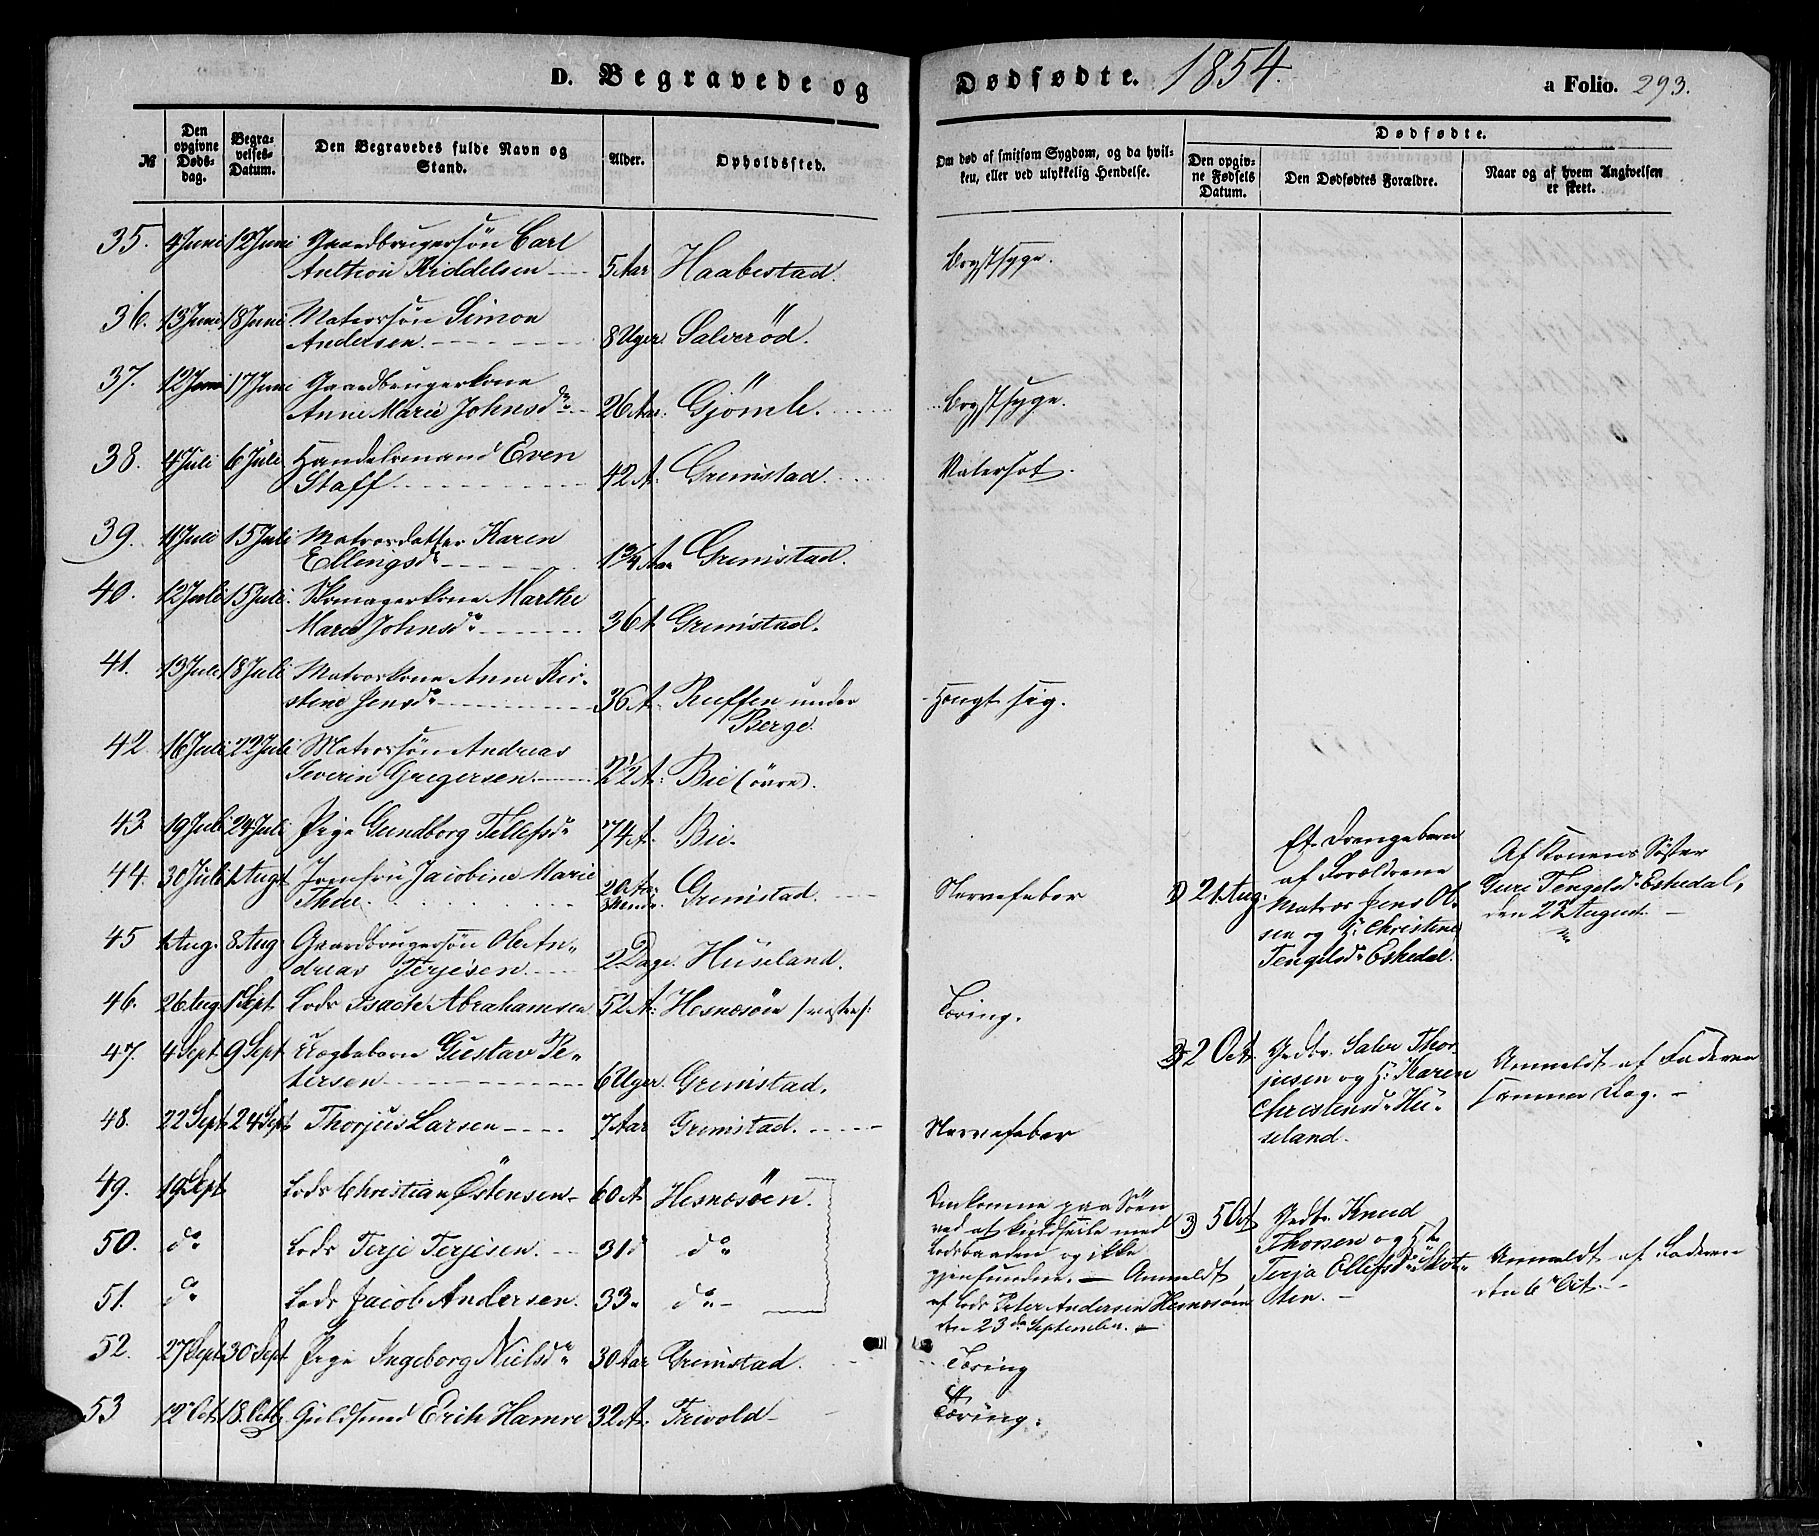 D. Begravede og Dødfødte. 1854. a Folio. 293.
№ Den opgivne Dødsdag. Begravelses-Datum. Den Begravedes fulde Navn og Stand. Alder. Opholdssted. Om død af smitsom Sygdom, og da hvilken, eller ved ulykkelig Hendelse. Dødfødte. Den opgivne Fødsels Datum. Den Dødfødtes Forældre. Naar og af hvem Angivelsen er skeet.
35. 4 Juni 12 Juni Gaardbrugersøn Carl
Anthon Riddelsen 5 Aar Haabestad. Brystsyge.
36. 13 Juni 18 Juni Matrossøn Simon
Andersen. 8 Uger Salverød.
37. 12 Juni 17 Juni Gaardbrugerkone
Anne Marie Johnsdr 26 Aar. Gjømle. Brystsyge.
38. 4 Juli 6 Juli Handelsmand Even
Staff 42 A. Gremistad. Vatersot.
39. 11 Juli 15 Juli Matrosdatter Karen
Ellingsdr 1 3/4 Aar Gremistad.
40. 12 Juli 15 Juli. Skomagerkone Marthe
Marie Johnsdr 36 A. Gremistad.
41. 13 Juli 18 Juli Matroskone Anne Kir-
stine Jensdr 36 A. Ruffen under
Berge. Hengt sig.
42. 16 Juli 22 Juli Matrossøn Andreas
Severin Gregersen. 2 1/2 A: Bie (øvre).
43. 19 Juli 24 Juli Pige Gundborg Tellefsdr 74 A. Bie.
44. 30 Juli 1 Augt Jomfru Jacobine Marie
Thoe. 20 Aar Gremistad. Nervefeber
1) 21 Aug. Et Drengebarn
af Forældrene
Matros Jens Ol-
sen og H: Christine
Tengelsdr Eskedal.
Af Konens Søster
Guri Tengelsdr Eskedal,
den 23 August.
45 1 Aug. 8 Aug Gaardbrugersøn Ole An-
dreas Terjesen 2 Dage. Huseland.
46. 26 Aug. 1 Sept. Lods Isach Abrahamsen 52 A: Hesnæsøen /: vestre :/ Tæring.
47. 4 Sept. 9 Sept Uægtebarn Gustav Pe-
tersen 6 Uger. Gremistad.
2) 2 Oct. Grdbr. Salve Thor-
jusen og H: Karen
Christensdr Hu-
seland.
Anmeldt af Faderen
samme Dag.
48. 22 Sept. 24 Sept Thorjus Larsen 7 Aar Gremistad. Nervefeber
49. 19 Sept Lods Christian Østensen 60 A Hesnæsøen.
50. do Lods Terje Terjesen. 31 do
51. do Lods Jacob Andersen. 33 do
Omkomne paa Søen
ved at kuldseile med
Lodsbaaden og ikke
gjenfundne. Anmeldt
af Lods Peter Andersen Hesnæsøen
den 23de September.
3) 5 Oct Grdbr. Knud
Thorsen og H:
Terja Ellefsdr Skot-
ten.
Anmeldt af Faderen
den 6 Oct.
52. 27 Sept 30 Sept Pige Ingeborg Nielsdr 30 Aar Gremistad. Tæring
53 12 Oct. 18. Octb. Guldsmed Erik Hamre 32 A: Frivold Tæring.